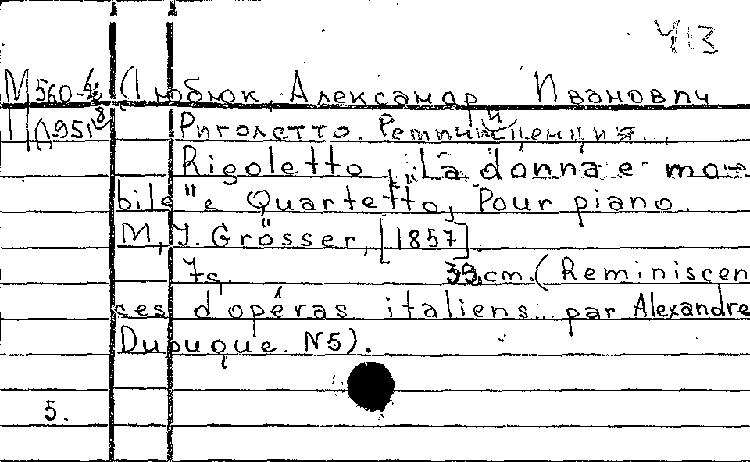 413
М560-4/8 Дюбюк, Александр Иванович
Д951 Риголетто. Реминисценция.
Rigoletto, „La donna e mo-
bile" e Quartetto, Pour piano.
М, J. Grösser, [1857].
7s. 33cm. (Reminiscen
ces d'opéras italiens.. par Alexandre
Dubuque. N5).
5.